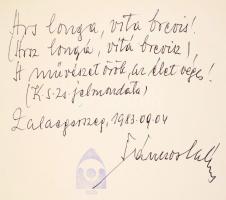 Ars longa, vita brevis!
(Arsz longa, vitá brevisz),
A művészet örök, az élet véges!
(K. S. Zs. jelmondata)
Zalaegerszeg, 1983.09.04